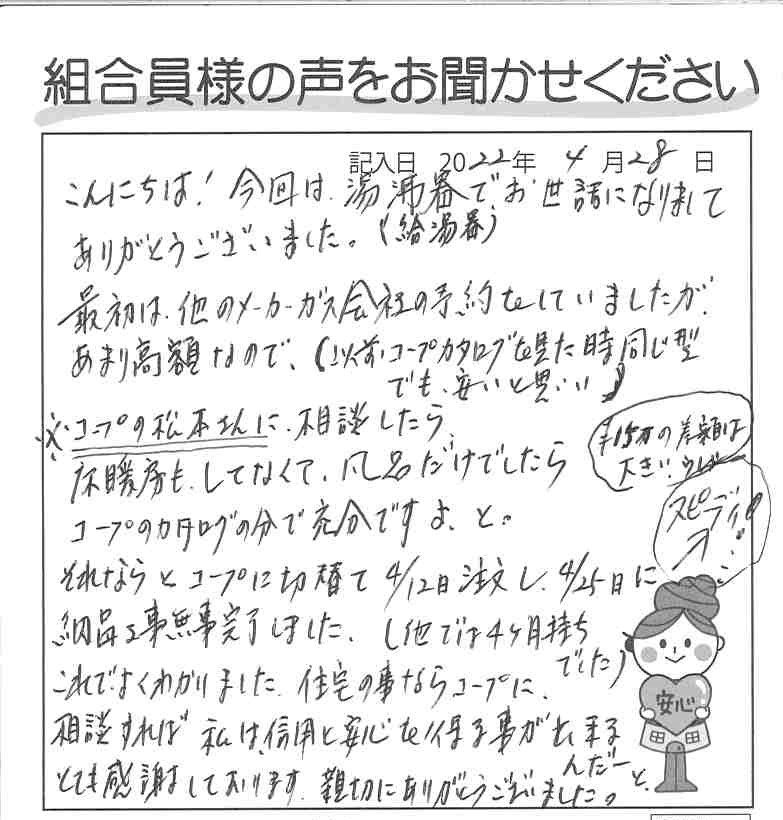 組合員様の声をお聞かせください
記入日 2022年 4月28日
こんにちは! 今回は、湯沸器で、お世話になりまして
ありがとうございました。(給湯器)
最初は、他のメーカーガス会社の予約をしていましたが、
あまり高額なので、(以前コープカタログを見た時同じ型
でも、安いと思い)
※コープの松本さんに、相談したら、
床暖房も、してなくて、風呂だけでしたら
コープのカタログの分で充分ですよ、と。
半15万の差額は
大きい。
スピーディ
それならとコープに切替て 4/12日注文し、4/25日に
納品工事無事完了しました、(他では4ヶ月待ち
でした)
これでよくわかりました、住宅の事ならコープに、
相談すれば 私は、信用と安心を得る事が出来る
んだーと、
とても感謝しております、親切にありがとうございました。
安心